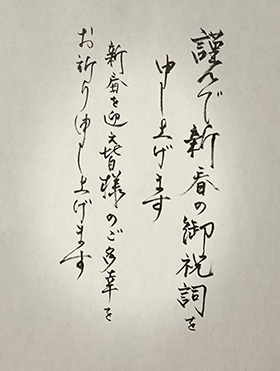 謹んで新春の御祝詞を
申し上げます
新春を迎え皆様のご多幸を
お祈り申し上げます